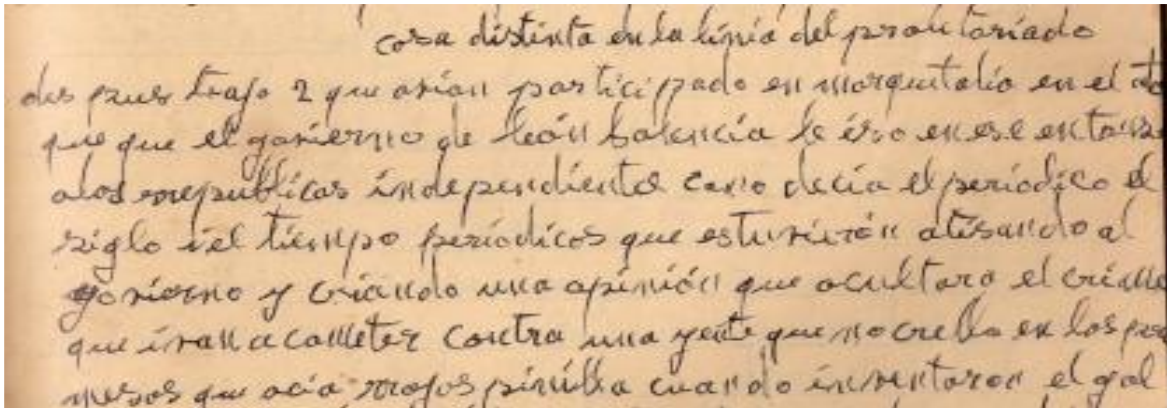 cosa distinta en la linia del proutoriado
des pues trajo 2 que avian participado en marquetalio en el ata
que que el govierno de león balencia le iso en ese entonse
alas rrepublicas independientes como decia el periodico el
siglo i el tiempo periodicos que estuvierón atisando al
govierno y criando una opinión que acultara el crime
que ivan a cometer contra una gente que no crella en las pro
mesas que acia rrojas pinilla cuando inventaron el gol